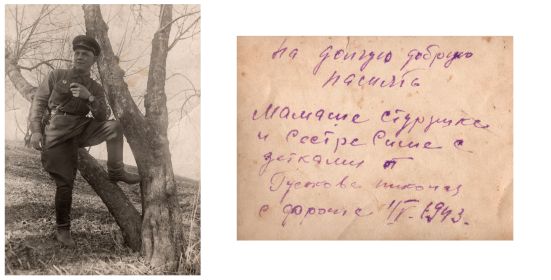 на долгую добрую
память
Мамаше старушке
и сестре Симе с
детками от
Гуськова Николая
с фронта 1/V-1943.